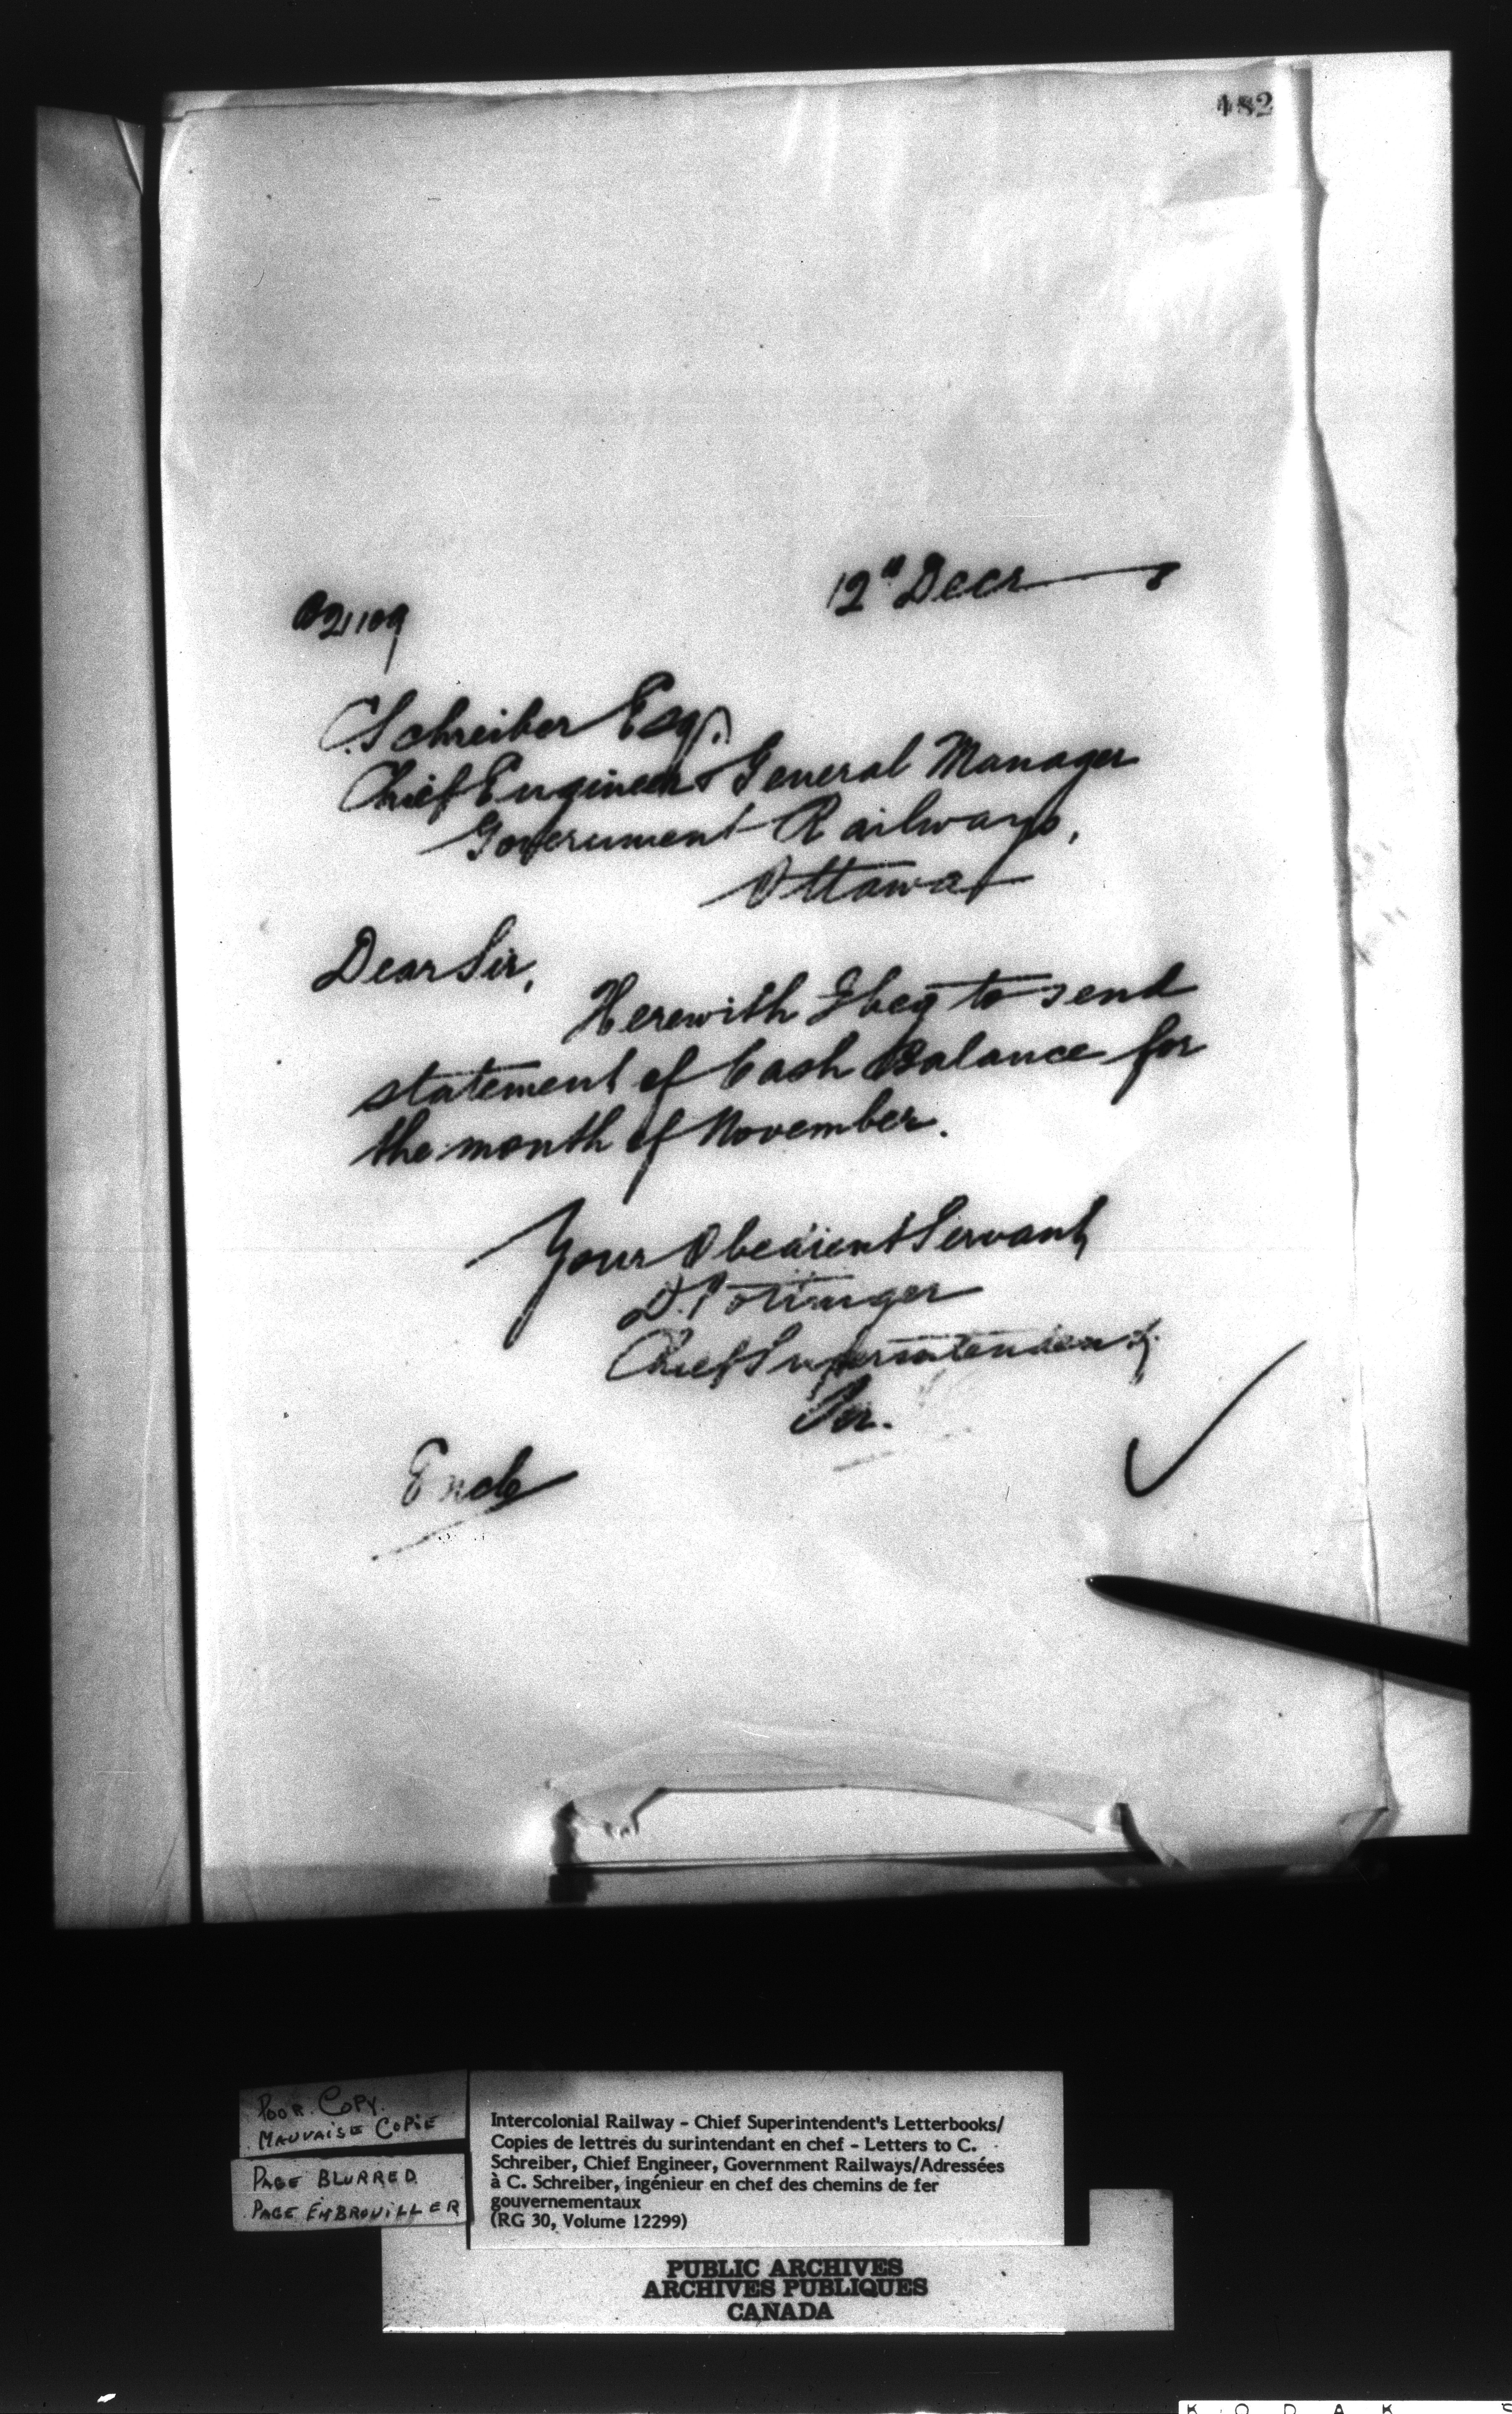 482
12" Decr
C. Schreiber Esq.
Chief Engineer & General Manager
Government Railways,
Ottawa
Dear Sir,
Herewith I beg to send
statement of Cash Balance for
the month of November.
Your Obedient Servant,
D. Pottinger
Chief Superintendent,
Per.
Encls
POOR COPY.
MAUVAISE COPIE
PAGE BLURRED
PAGE EMBROUILLER
Intercolonial Railway - Chief Superintendent's Letterbooks/
Copies de lettres du surintendant en chef - Letters to C.
Schreiber, Chief Engineer, Government Railways/Adressées
à C. Schreiber, ingénieur en chef des chemins de fer
gouvernementaux
(RG 30, Volume 12299)
PUBLIC ARCHIVES
ARCHIVES PUBLIQUES
CANADA
KODAK